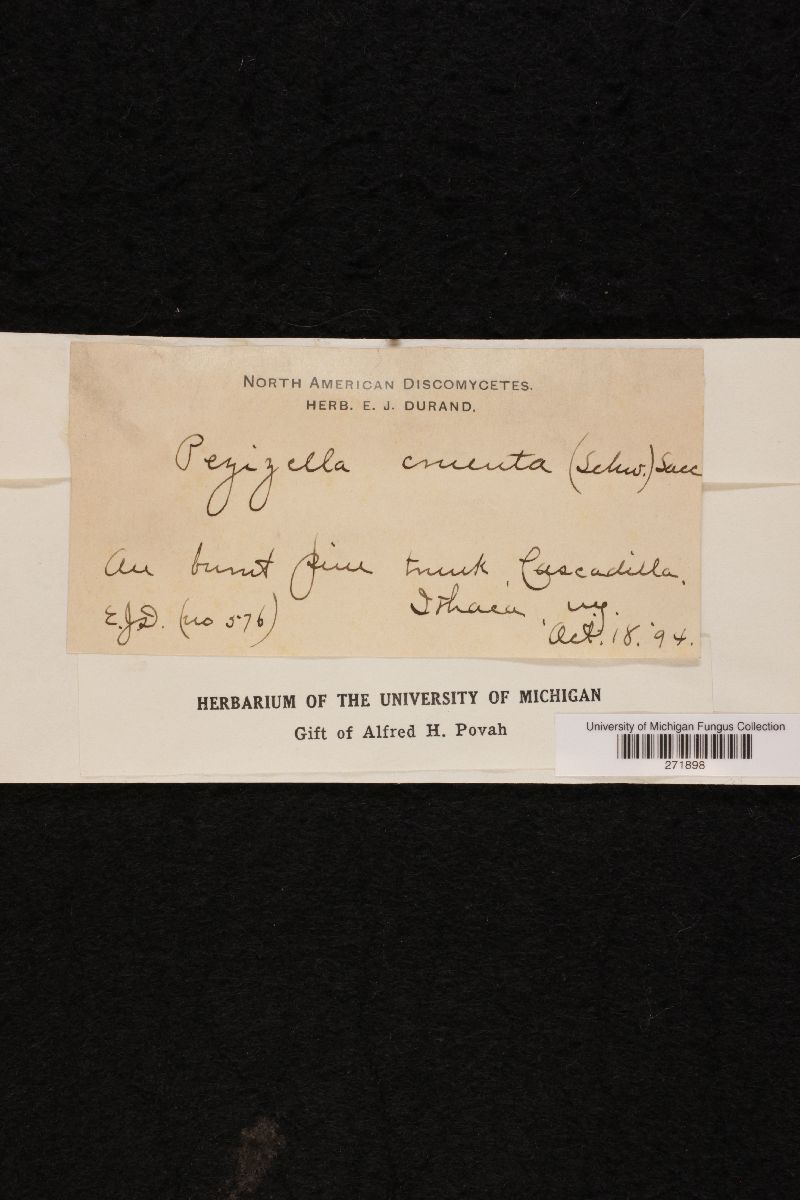 NORTH AMERICAN DISCOMYCETES.
HERB. E. J. DURAND.
Pezizella cruenta (Schw.) Sacc
On burnt pine trunk, Cascadilla,
Ithaca, N.Y.
E.J.D. (no 576)
Oct. 18. '94.
HERBARIUM OF THE UNIVERSITY OF MICHIGAN
Gift of Alfred H. Povah
University of Michigan Fungus Collection
271898